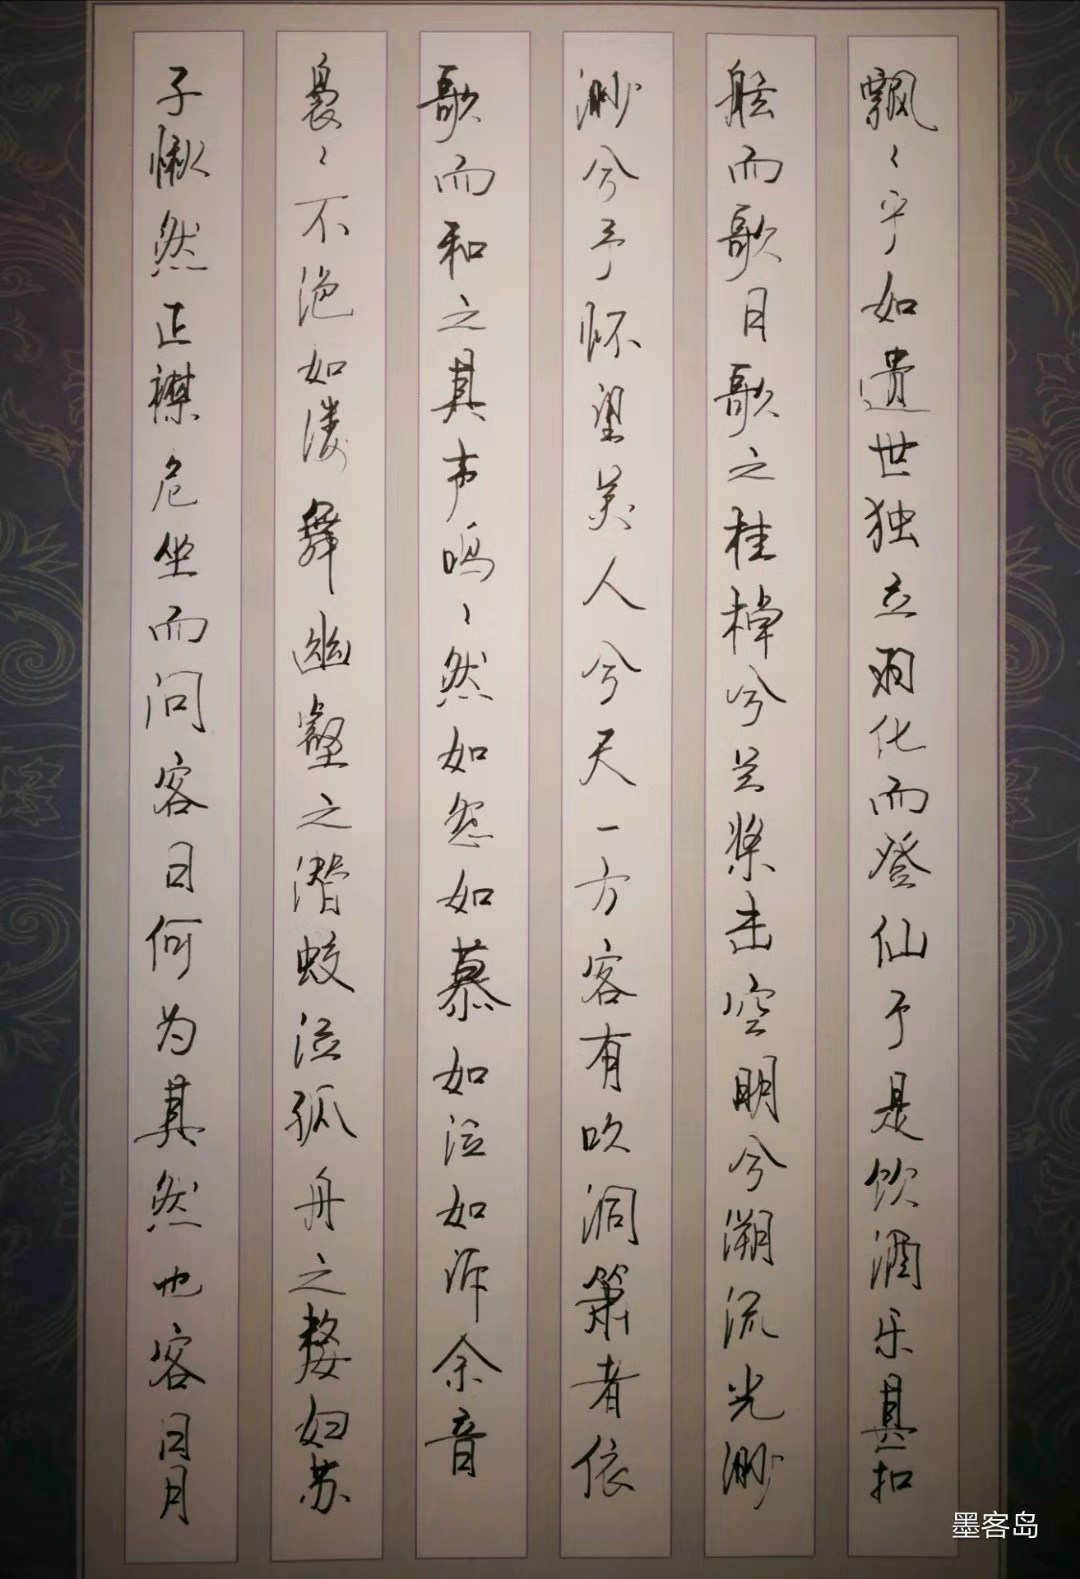 飘〻乎如遗世独立羽化而登仙于是饮酒乐甚扣
舷而歌曰歌之桂棹兮兰桨击空明兮溯流光渺
渺兮予怀望美人兮天一方客有吹洞箫者依
歌而和之其声呜〻然如怨如慕如泣如诉余音
袅〻不绝如缕舞幽壑之潜蛟泣孤舟之嫠妇苏
子愀然正襟危坐而问客曰何为其然也客曰月
墨客岛